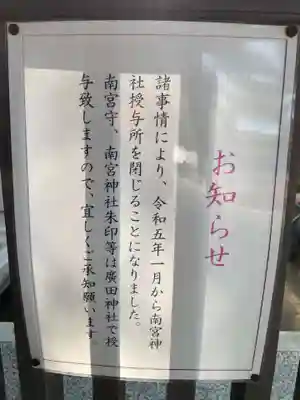 お知らせ
諸事情により、令和五年一月から南宮神
社授与所を閉じることになりました。
南宮守、南宮神社朱印等は廣田神社で授
与致しますので、宜しくご承知願います